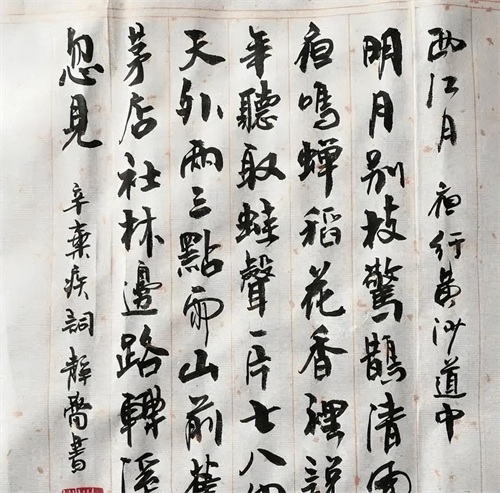 西江月 夜行黄沙道中
明月别枝驚鵲清風
夜鳴蟬稻花香裡說
年聽取蛙聲一片七八個
天外兩三點雨山前舊
茅店社林邊路轉溪
忽見 辛棄疾詞 靜齋書